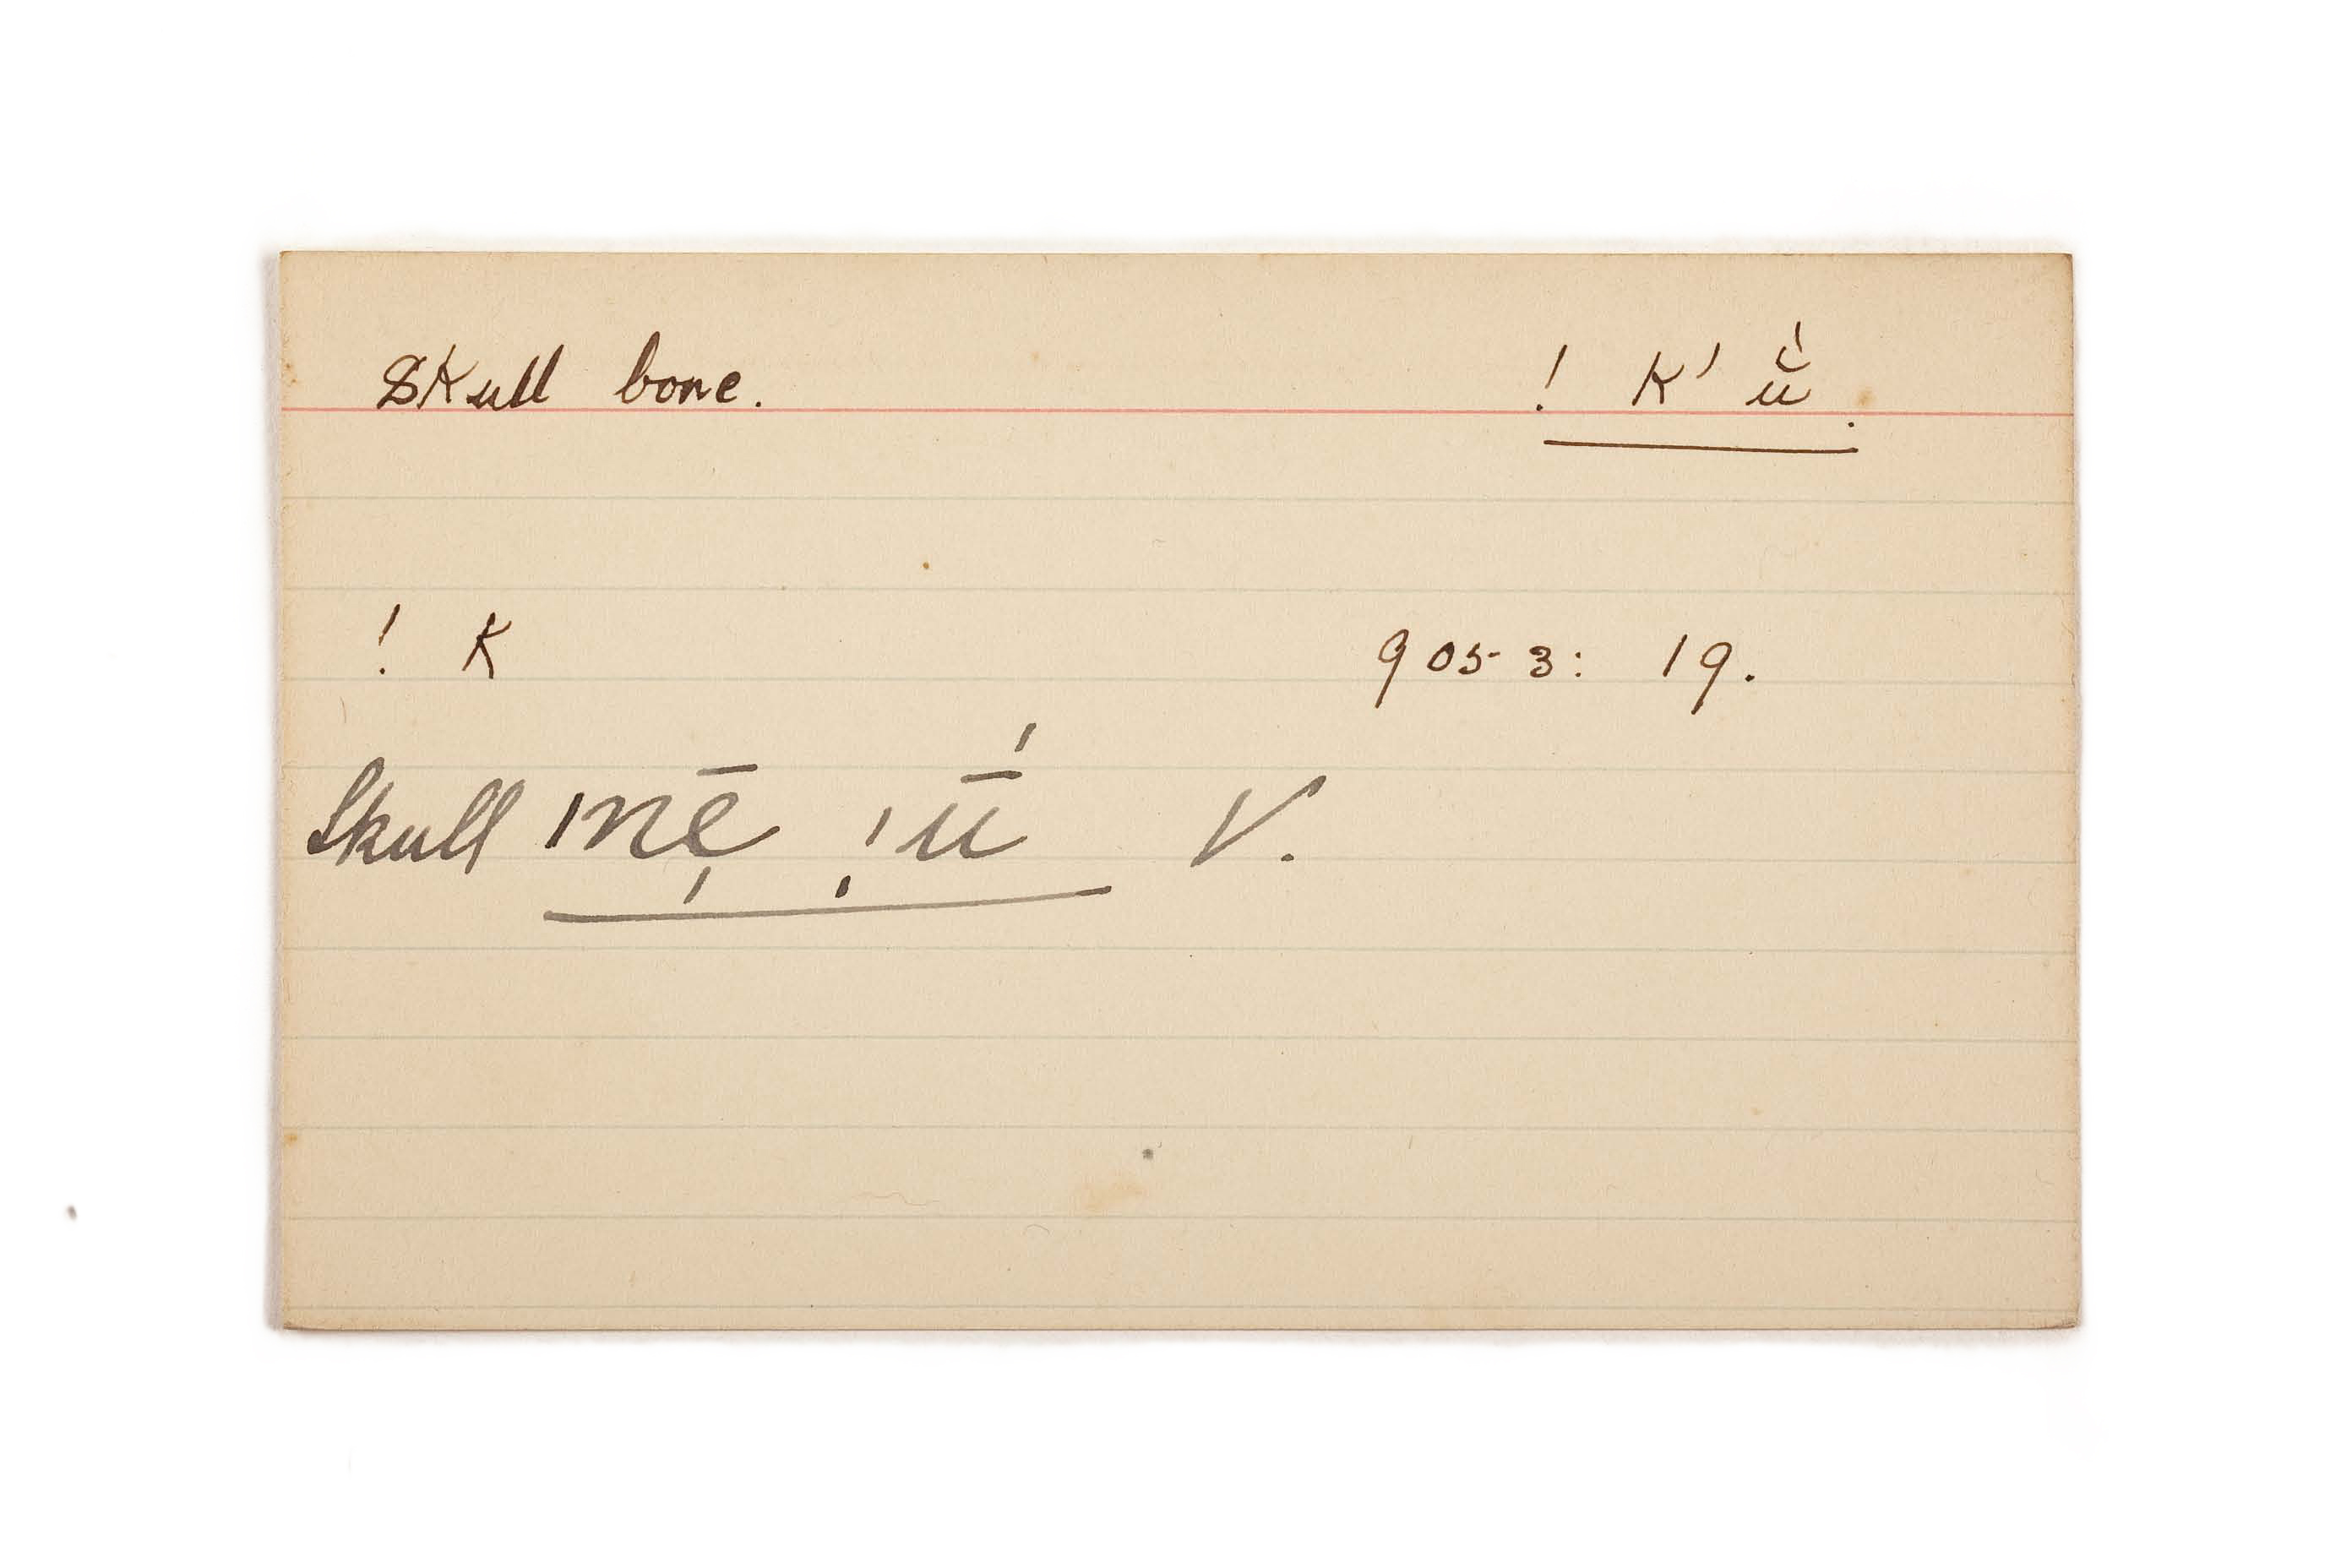 Skull bone. ! k' ŭ́.
! k 9053: 19.
Skull ǀnē̦ !ū́ V.